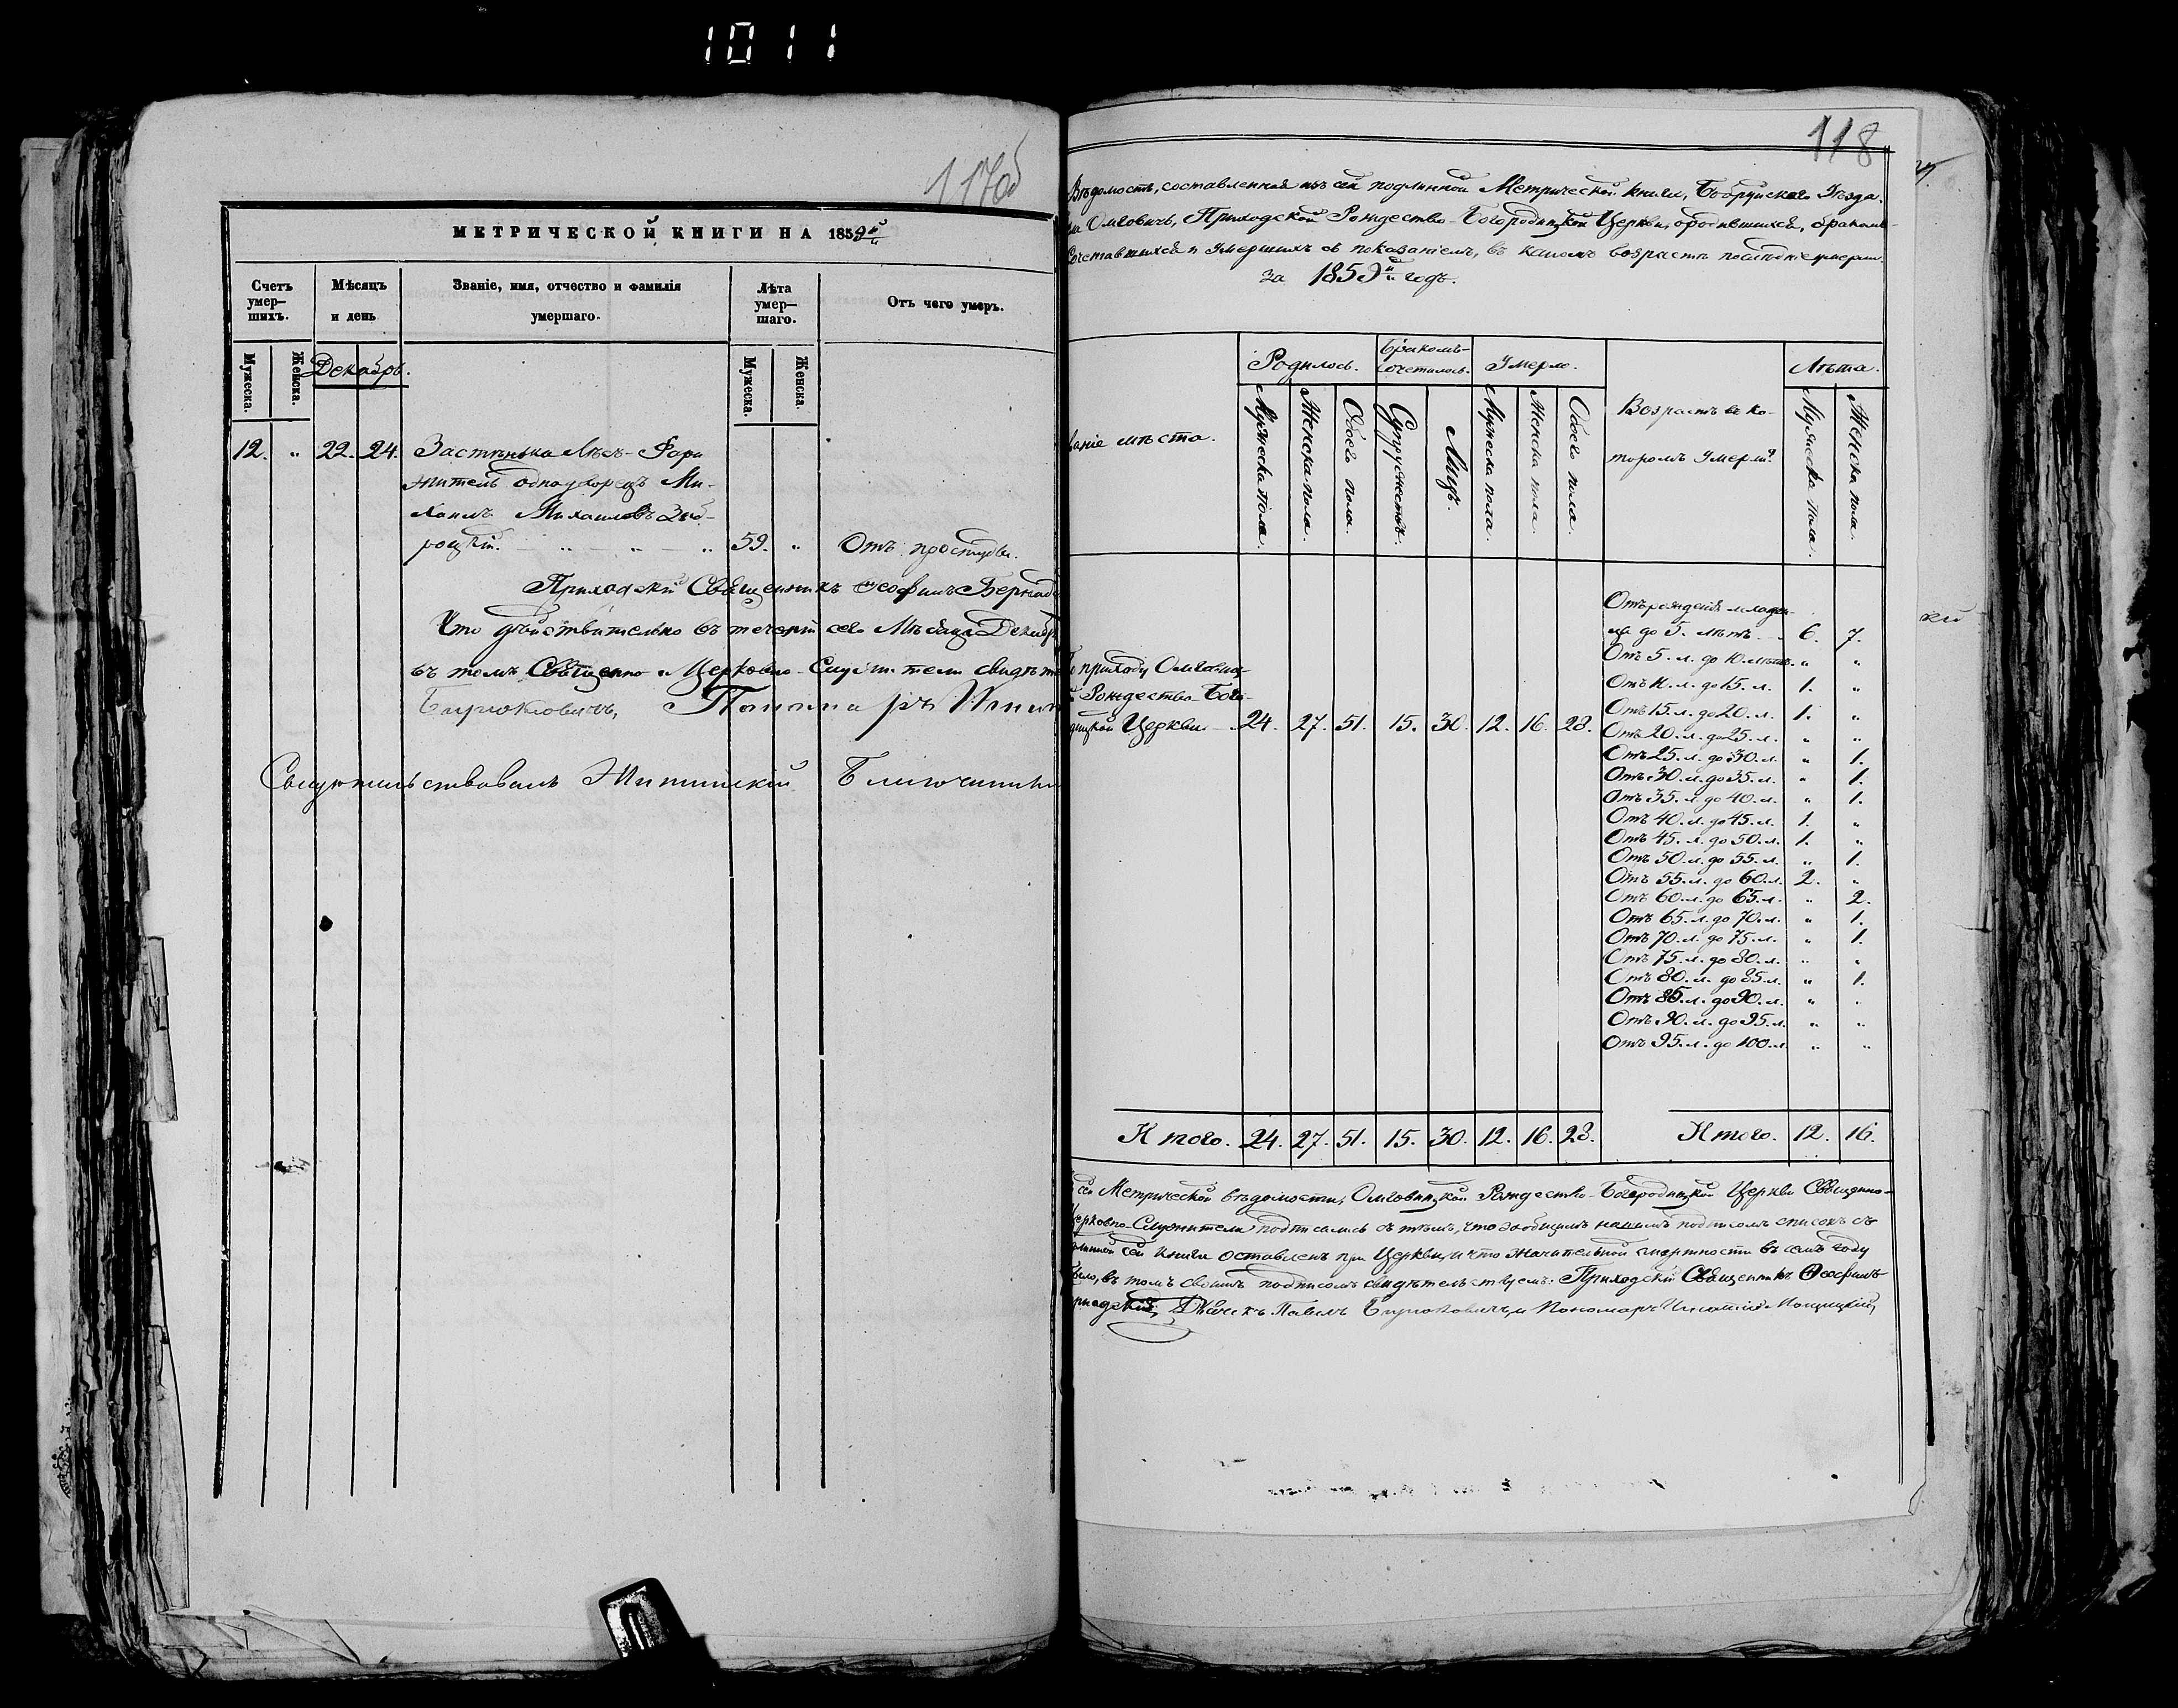 1011
117об
МЕТРИЧЕСКОЙ КНИГИ НА 1859й
Счетъ умер-
шихъ.
Мѣсяцъ
и день
Званіе, имя, отчество и фамилія
умершаго.
Лѣта
умер-
шаго.
Отъ чего умеръ.
Мужеска.
Женска.
Декабрь.
Мужеска.
Женска.
12. " 22. 24. Застѣнька
житель однодворецъ Ми-
хаилъ Михаиловъ
59. " Отъ простуды.
Приходскій Священникъ Ѳеофилъ
Что дѣйствительно въ теченіи сего Мѣсяца
въ томъ Священно-Церковно-Служители
Бирюковичъ, Пономарь
Свидѣтельствовалъ
118
Вѣдомость, составленная изъ сей подлинной Метрической книги, Бобруйскаго Уѣзда.
Омговичъ, Приходской Рождество-Богородицкой Церкви, о родившихся, бракомъ
Сочетавшихся и Умершихъ съ показаніемъ, въ какомъ возрастѣ послѣдніе умерли
за 1859й годъ.
ваніе мѣста.
Родилось.
Бракомъ-
сочеталось.
Умерло.
Возрастъ въ ко-
торомъ Умерли.
Лѣта.
Мужеска пола.
Женска пола.
Обоего пола.
Супружествъ.
Лицъ.
Мужеска пола.
Женска пола.
Обоего пола.
Мужеска пола.
Женска пола.
Отъ рожденія младен-
ца до 5. лѣтъ 6. 7.
Отъ 5. л. до 10. лѣтъ. " "
Отъ 10. л. до 15. л. 1. "
Отъ 15. л. до 20. л. 1. "
Отъ 20. л. до 25. л. " "
Отъ 25. л. до 30. л. " 1.
Отъ 30. л. до 35. л. " 1.
Отъ 35. л. до 40. л. " 1.
Отъ 40. л. до 45. л. 1. "
Отъ 45. л. до 50. л. 1. "
Отъ 50. л. до 55. л. " 1.
Отъ 55. л. до 60. л. 2. "
Отъ 60. л. до 65. л. " 2.
Отъ 65. л. до 70. л. " 1.
Отъ 70. л. до 75. л. " 1.
Отъ 75. л. до 80. л. " "
Отъ 80. л. до 85. л. " 1.
Отъ 85. л. до 90. л. " "
Отъ 90. л. до 95. л. " "
Отъ 95. л. до 100. л. " "
приходу Омговиц-
Рождество-Бого-
дицкой Церкви. 24. 27. 51. 15. 30. 12. 16. 28.
Итого. 24. 27. 51. 15. 30. 12. 16. 28.
Итого. 12. 16.
сей Метрической вѣдомости, Омговицкой Рождество-Богородицкой Церкви Священно-
Церковно-Служители подписались съ тѣмъ, что за общимъ нашимъ подписомъ списокъ съ
сей книги оставленъ при Церкви, и что значительной смертности въ семъ году
было, въ томъ своимъ подписомъ свидѣтельствуемъ: Приходскій Священникъ Ѳеофилъ
Дьячекъ Павелъ Бирюковичъ, и Пономарь